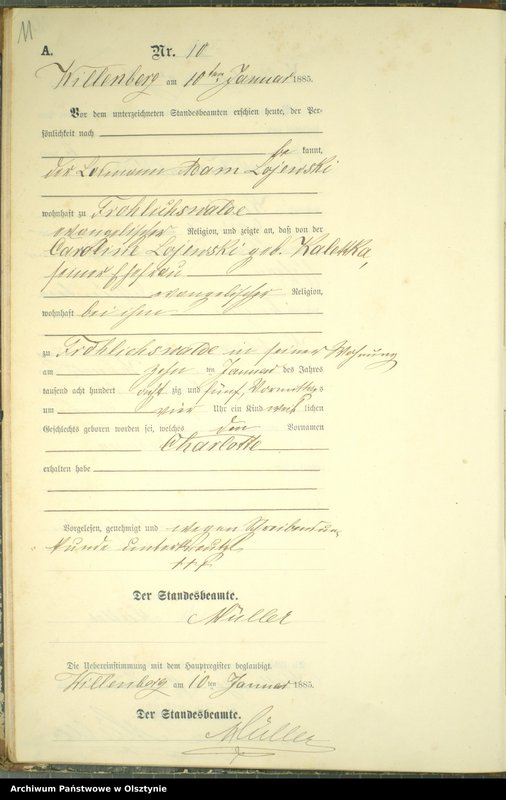 11
A. Nr. 10
Willenberg am 10ten Januar 1885.
Vor dem unterzeichneten Standesbeamten erschien heute, der Per-
sönlichkeit nach
be kannt,
der Losmann Adam Lojewski
wohnhaft zu Fröhlichswalde
evangelischer Religion, und zeigte an, daß von der
Caroline Lojewski geb. Kaletka,
seiner Ehefrau
evangelischer Religion,
wohnhaft bei ihm
zu Fröhlichswalde in seiner Wohnung
am zehn ten Januar des Jahres
tausend acht hundert acht zig und fünf, Vormittags
um vier Uhr ein Kind weib lichen
Geschlechts geboren worden sei, welches den Vornamen
Charlotte
erhalten habe
Vorgelesen, genehmigt und wegen Schreibensun-
kunde unterkreuzt
+++
Der Standesbeamte.
Müller
Die Uebereinstimmung mit dem Hauptregister beglaubigt.
Willenberg am 10ten Januar 1885.
Der Standesbeamte.
Müller
Archiwum Państwowe w Olsztynie